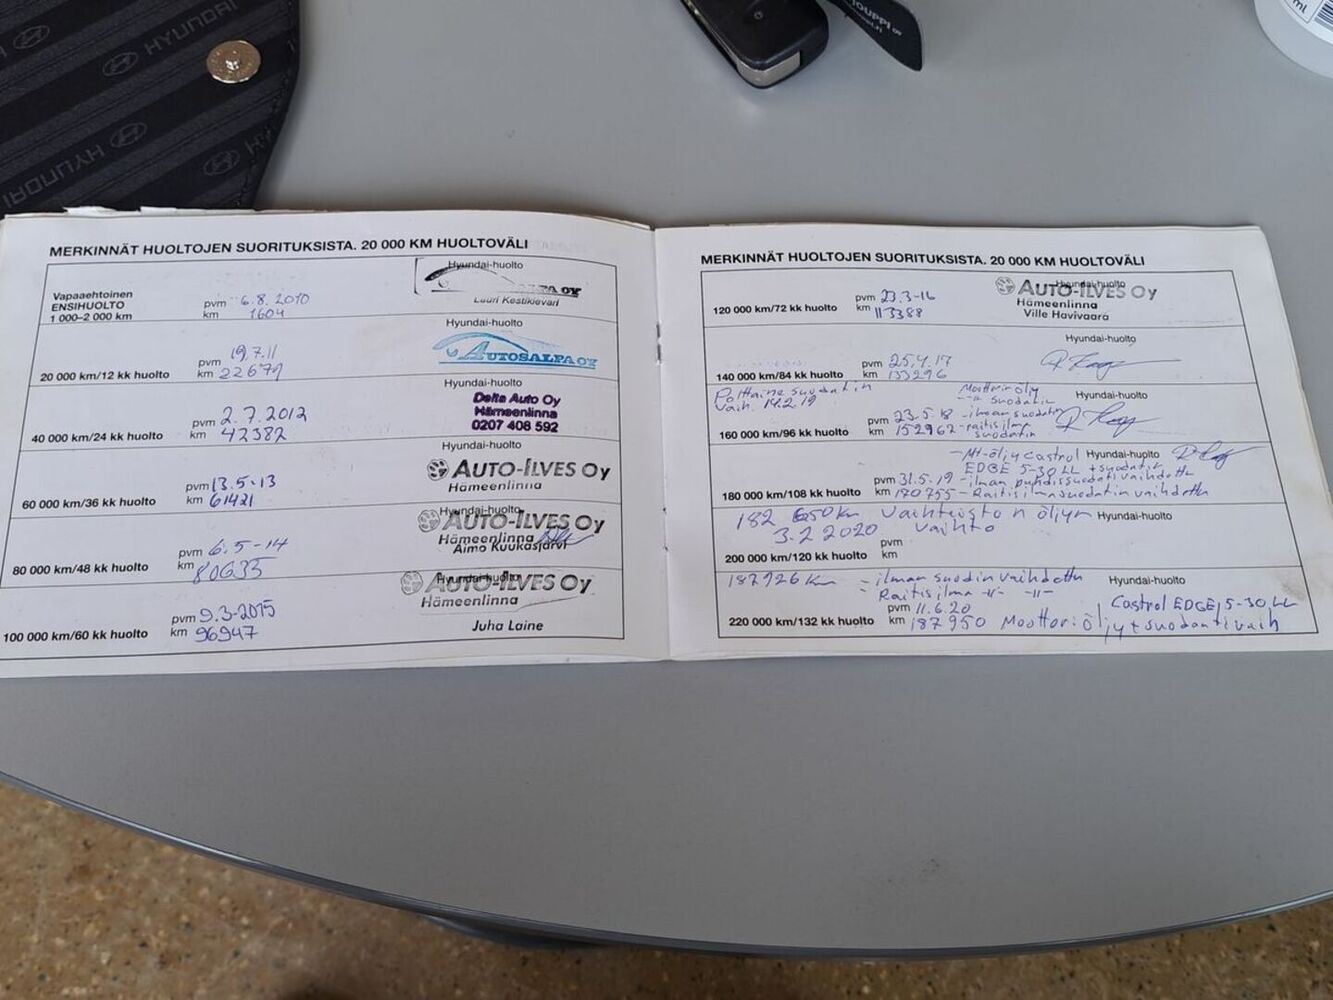 HYUNDAI
HYUNDAI
JOUPPI OY
ml
MERKINNÄT HUOLTOJEN SUORITUKSISTA. 20 000 KM HUOLTOVÄLI
Vapaaehtoinen
ENSIHUOLTO
1 000–2 000 km
pvm 6.8.2010
km 1604
Hyundai-huolto
Lauri Kestikievari
20 000 km/12 kk huolto
pvm 19.7.11
km 22679
Hyundai-huolto
AUTOSALPA OY
40 000 km/24 kk huolto
pvm 2.7.2012
km 42382
Hyundai-huolto
Delta Auto Oy
Hämeenlinna
0207 408 592
60 000 km/36 kk huolto
pvm 13.5.13
km 61421
Hyundai-huolto
AUTO-ILVES Oy
Hämeenlinna
80 000 km/48 kk huolto
pvm 6.5-14
km 80635
Hyundai-huolto
AUTO-ILVES Oy
Hämeenlinna
Aimo Kuukasjärvi
100 000 km/60 kk huolto
pvm 9.3-2015
km 96947
Hyundai-huolto
AUTO-ILVES Oy
Hämeenlinna
Juha Laine
MERKINNÄT HUOLTOJEN SUORITUKSISTA. 20 000 KM HUOLTOVÄLI
120 000 km/72 kk huolto
pvm 23.3-16
km 113388
Hyundai-huolto
AUTO-ILVES Oy
Hämeenlinna
Ville Havivaara
140 000 km/84 kk huolto
pvm 25.4.17
km 133296
Hyundai-huolto
Polttoaine suodatin
vaih. 14.2.19
160 000 km/96 kk huolto
pvm 23.5.18
km 152962
Moottoriöljy
-"- suodatin
-ilmansuodatin
-raitisilma
suodatin
Hyundai-huolto
180 000 km/108 kk huolto
pvm 31.5.19
km 170755
-Mt-öljy Castrol
EDGE 5-30 LL + suodatin
-ilman puhdissuodatin vaihdettu
-Raitisilmasuodatin vaihdettu
Hyundai-huolto
182 650 km vaihteiston öljyn
3.2 2020 vaihto
200 000 km/120 kk huolto
pvm
km
Hyundai-huolto
187926 km - ilman suodin vaihdettu
- Raitis ilma -"- -"-
220 000 km/132 kk huolto
pvm 11.6.20
km 187950 Moottoriöljy + suodantivaih
Hyundai-huolto
Castrol EDGE 5-30 LL